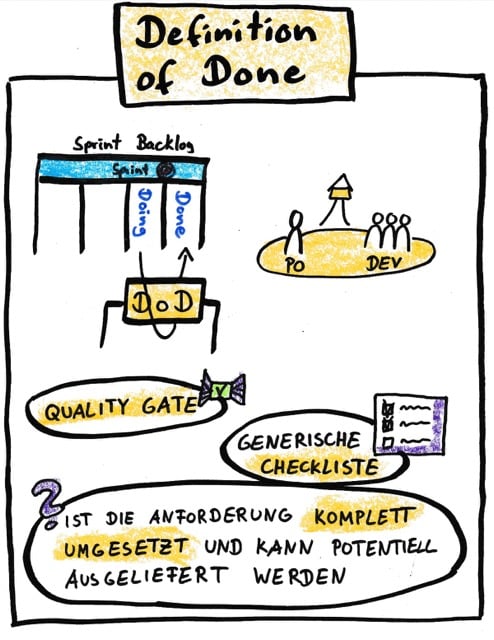 Definition
of Done
Sprint Backlog
Sprint
Doing
Done
PO
DEV
DoD
QUALITY GATE
GENERISCHE
CHECKLISTE
? IST DIE ANFORDERUNG KOMPLETT
UMGESETZT UND KANN POTENTIELL
AUSGELIEFERT WERDEN